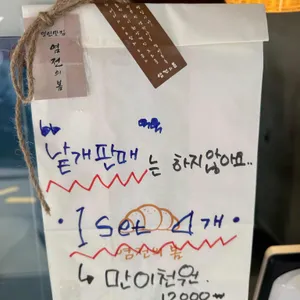 염전의봄
낱개판매는 하지않아요..
1 set 4개
염전의 봄
↳ 만이천원
12000₩